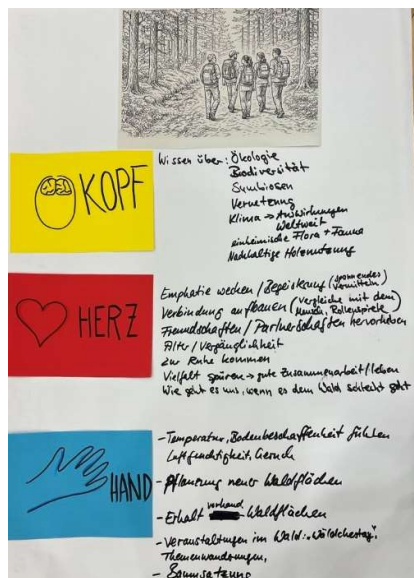 KOPF
Wissen über: Ökologie
Biodiversität
Symbiosen
Vernetzung
Klima → Auswirkungen
Weltweit
einheimische Flora + Fauna
Nachhaltige Holznutzung
HERZ
Emphatie wecken / Begeisterung (spannendes Vermitteln)
Verbindung aufbauen (Vergleiche mit dem Mensch, Rollenspiele)
Freundschaften / Partnerschaften hervorheben
Alter / Vergänglichkeit
zur Ruhe kommen
Vielfalt spüren → gute Zusammenarbeit/leben
Wie geht es uns, wenn es dem Wald schlecht geht
HAND
- Temperatur, Bodenbeschaffenheit fühlen
Luftfeuchtigkeit, Geruch
- Pflanzung neuer Waldflächen
- Erhalt vorhand. Waldflächen
- Veranstaltungen im Wald: "Wäldchestag",
Themenwanderungen,
- Baumsatzung